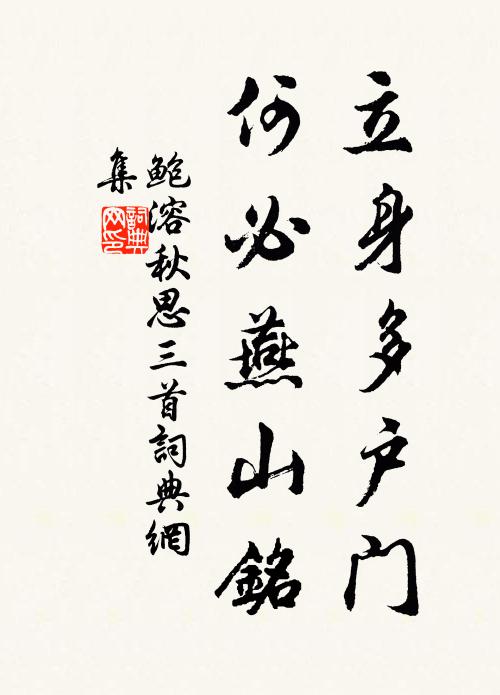 立身多户门
何必燕山銘
鲍溶秋思三首詞典網
集
詞典网印